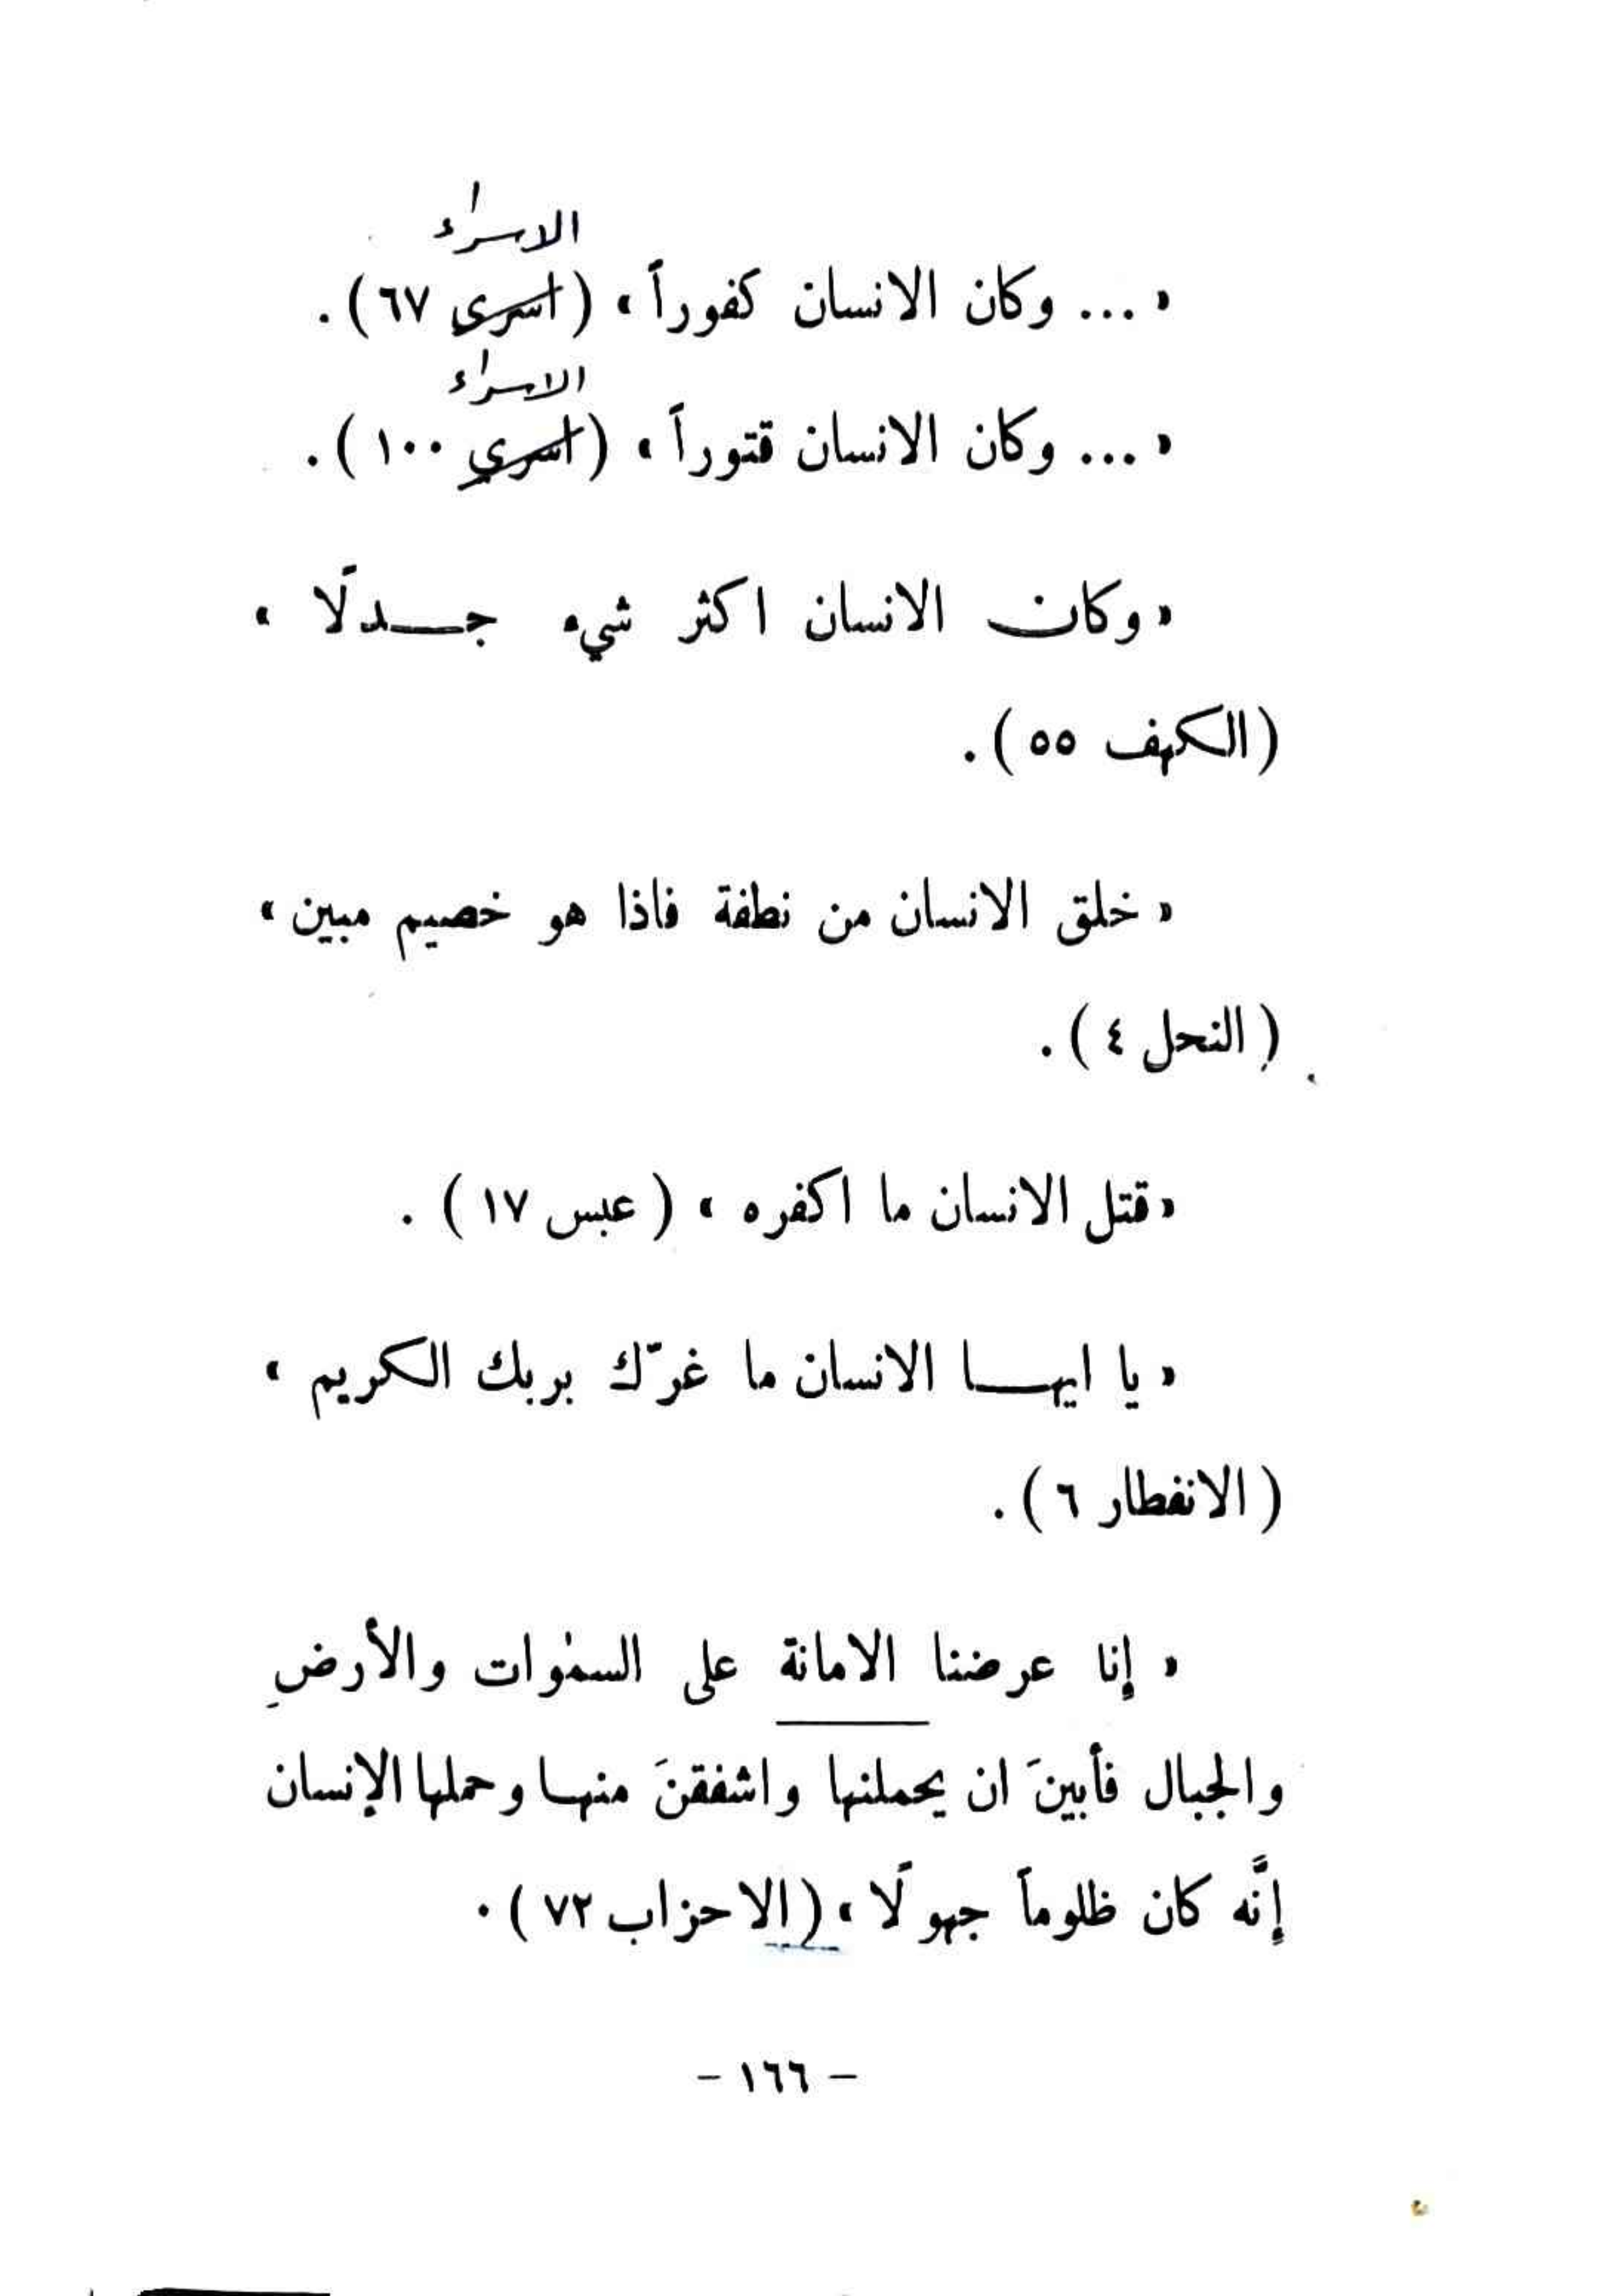 الاسراء
« ... وكان الانسان كفوراً » ( اسرى ٦٧ ) .
الاسراء
« ... وكان الانسان قتوراً » ( اسرى ١٠٠ ) .
« وكان الانسان اكثر شيء جـــدلًا »
( الكهف ٥٥ ) .
« خلق الانسان من نطفة فاذا هو خصيم مبين »
( النحل ٤ ) .
« قتل الانسان ما اكفره » ( عبس ١٧ ) .
« يا ايهـــا الانسان ما غرّك بربك الكريم »
( الانفطار ٦ ) .
« إنا عرضنا الامانة على السمٰوات والأرضِ
والجبال فأبينَ ان يحملنها واشفقنَ منهـا وحملها الإنسان
إنَّه كان ظلوماً جهولًا » ( الاحزاب ٧٢ ) .
– ١٦٦ –